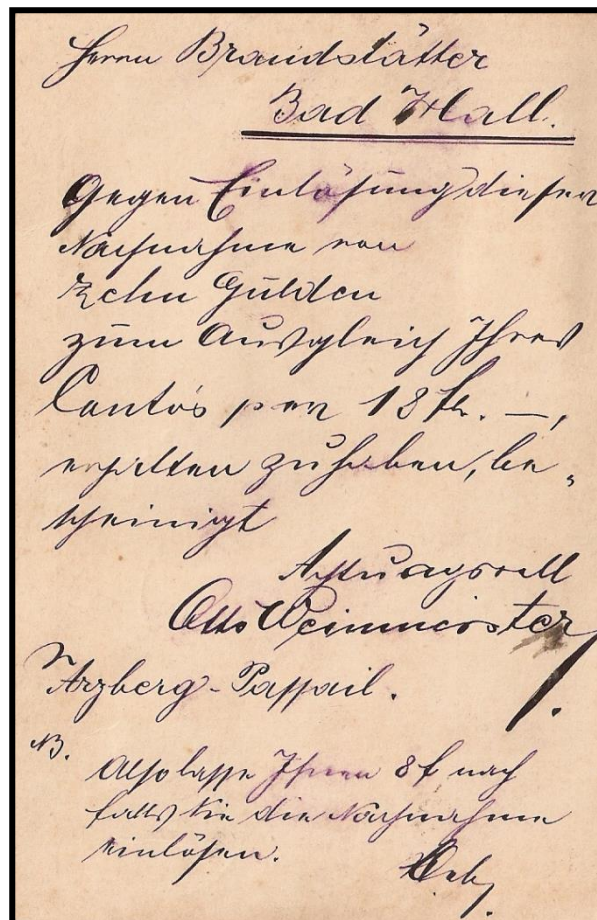 Herrn Brandstätter
Bad Hall.
Gegen Einlösung dieser
Nachnahme von
Zehn Gulden
zum Ausgleich Ihres
Conto's per 18 fl. —,
erhalten zu haben, be-
scheinigt
Achtungsvoll
Otto Weinmeister
Arzberg - Passail.
NB. Also lasse Ihnen 8 f nach
falls Sie die Nachnahme
einlösen.